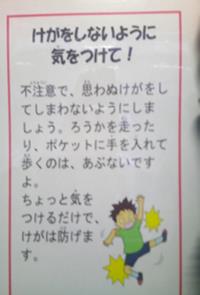 けがをしないように
気をつけて！
不注意で、思わぬけがをし
てしまわないようにしま
しょう。ろうかを走った
り、ポケットに手を入れて
歩くのは、あぶないです
よ。
ちょっと気を
つけるだけで、
けがは防げま
す。